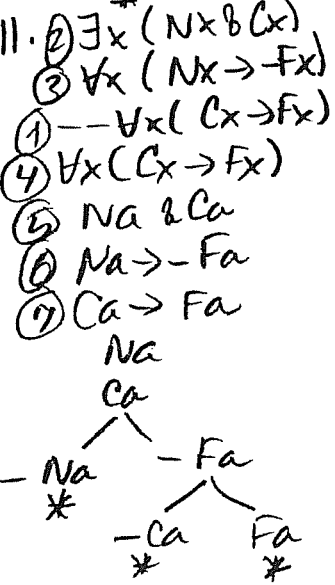 11. ② ∃x (Nx & Cx)
③ ∀x (Nx → -Fx)
① --∀x( Cx → Fx)
④ ∀x(Cx → Fx)
⑤ Na & Ca
⑥ Na → - Fa
⑦ Ca → Fa
Na
Ca
- Na - Fa
* -Ca Fa
* *